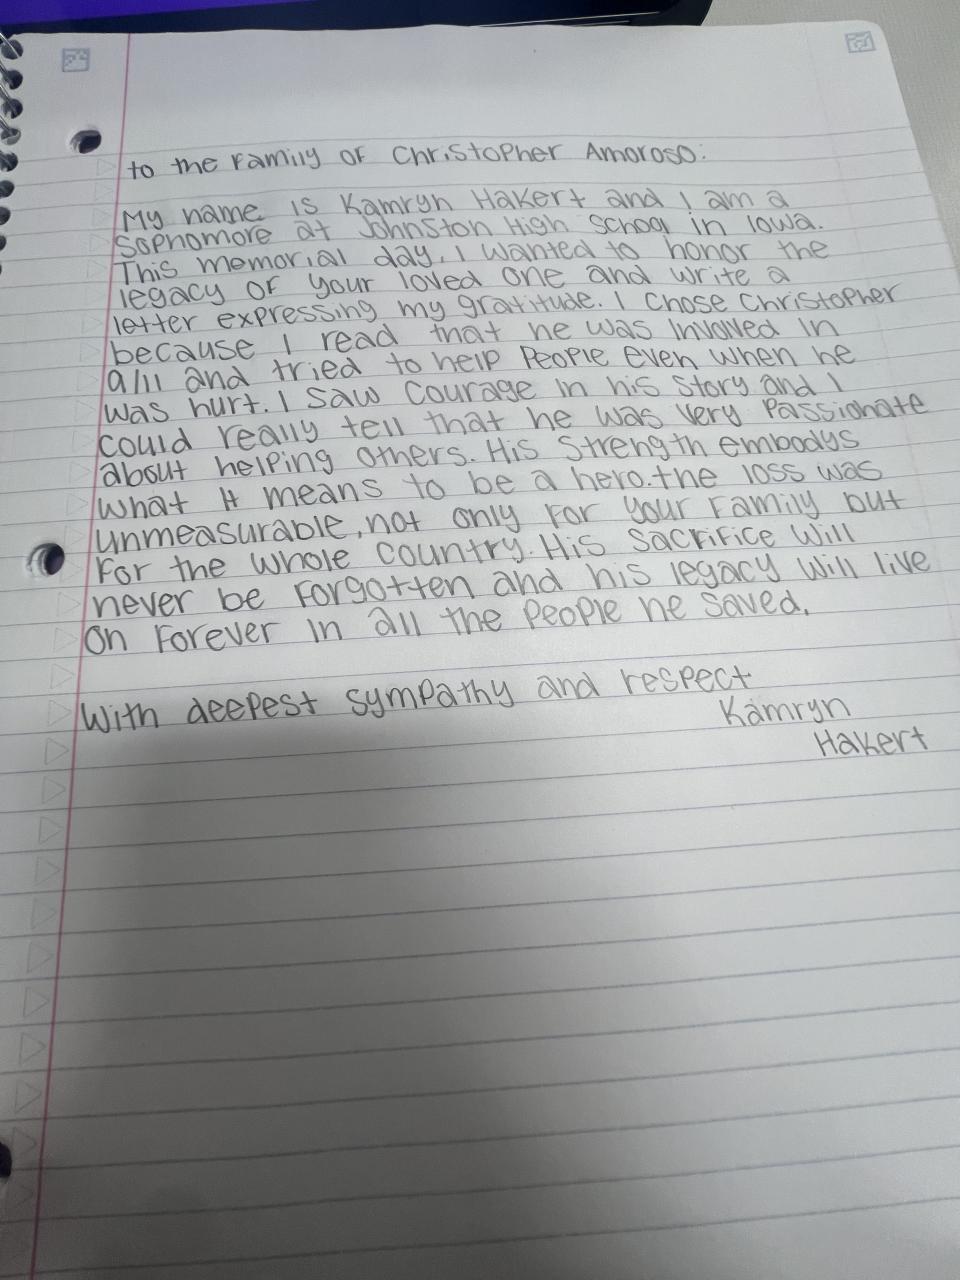 to the Family of Christopher Amoroso:
My name is Kamryn Hakert and I am a
Sophomore at Johnston High School in Iowa.
This memorial day, I wanted to honor the
legacy of your loved one and write a
letter expressing my gratitude. I chose Christopher
because I read that he was involved in
9/11 and tried to help People even when he
was hurt. I saw courage in his story and I
could really tell that he was very Passionate
about helping others. His strength embodys
what it means to be a hero. the loss was
unmeasurable, not only for your Family but
For the whole country. His sacrifice will
never be Forgotten and his legacy will live
on Forever in all the People he saved.
With deepest sympathy and respect
Kamryn
Hakert